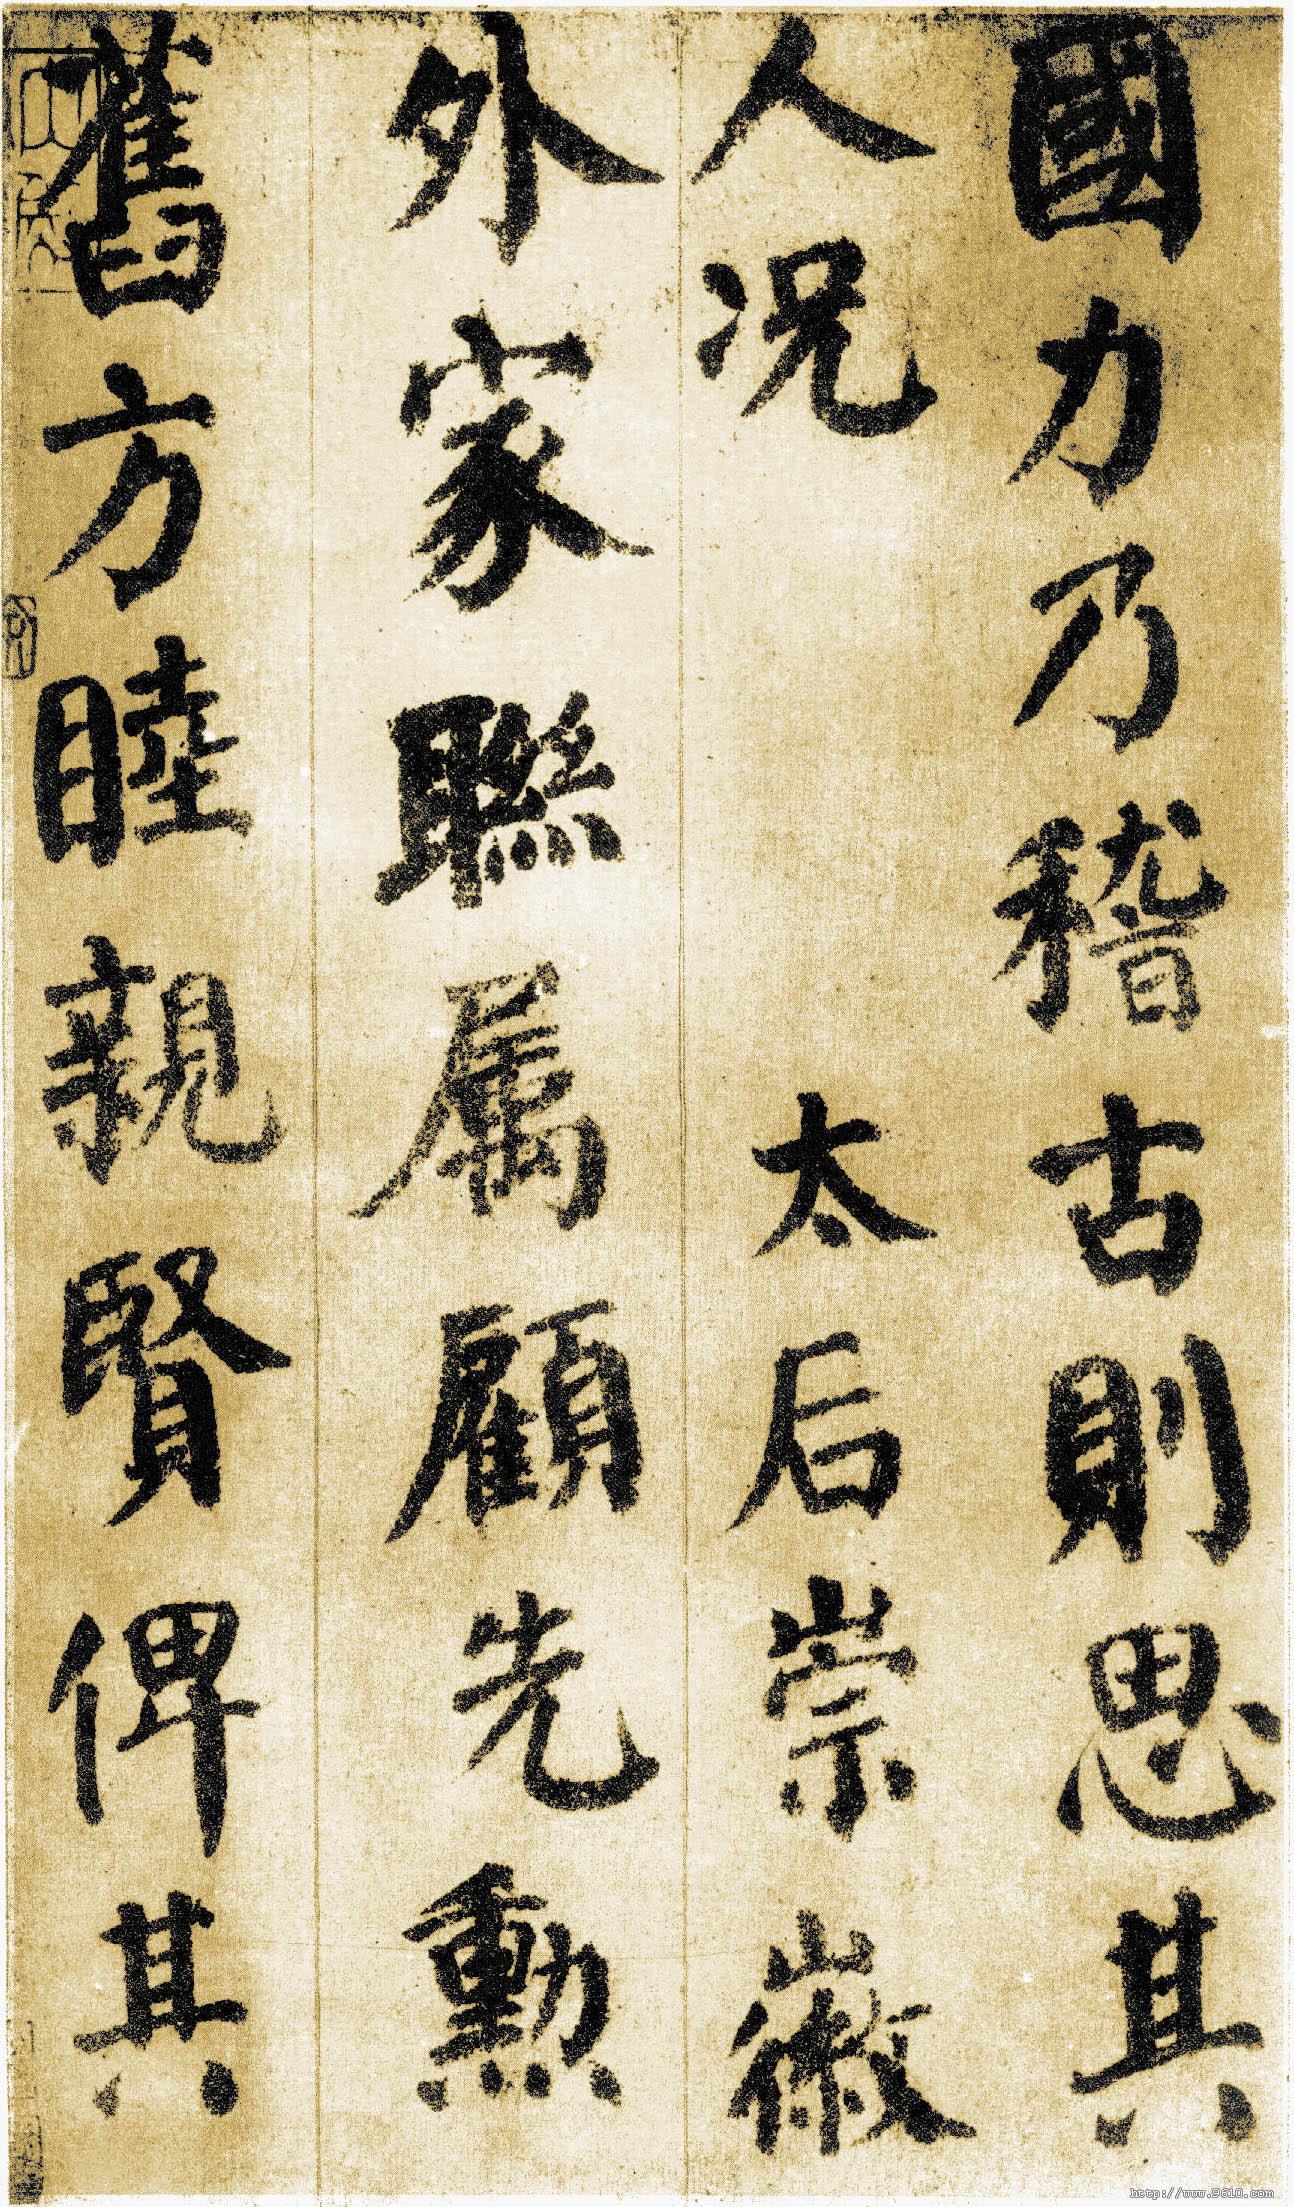 國力乃稽古則思其
人況 太后崇徽
外家聯属顧先勳
舊方睦親賢俾其
http://www.9610.com